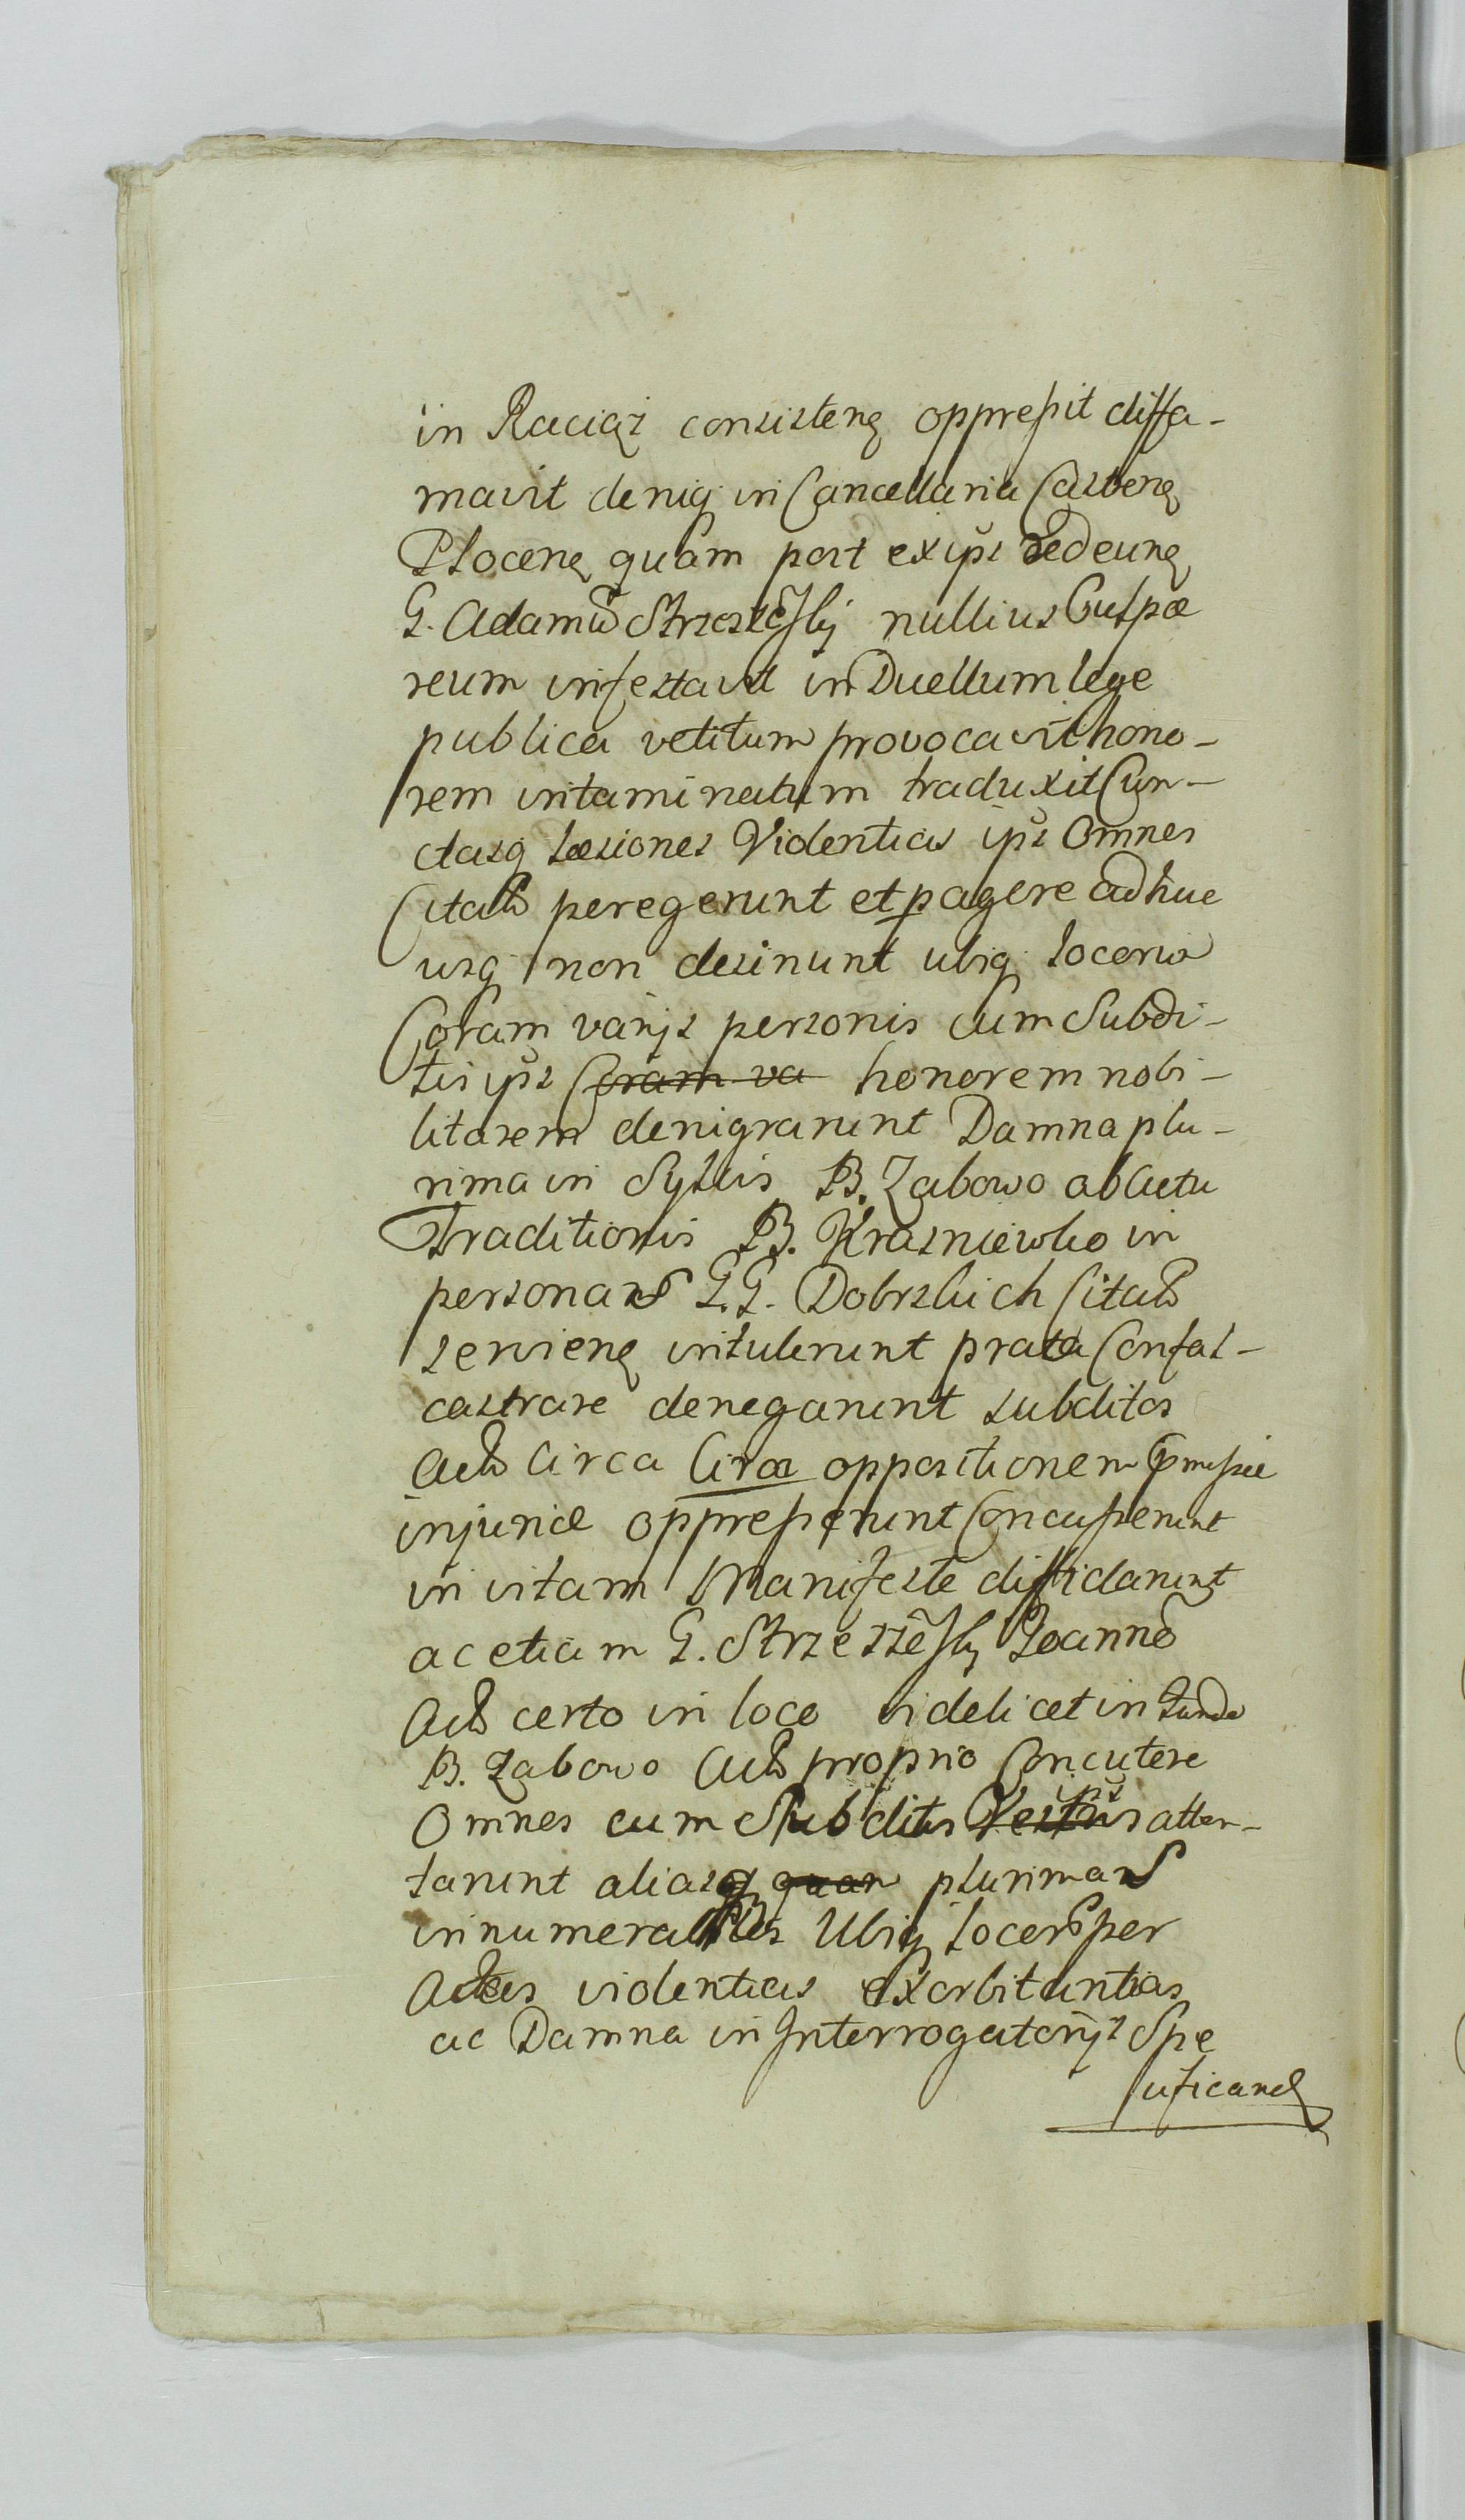 in Raciąż consisteñ oppressit diffa-
mavit deniq in Cancellaria Castreñ
Ploceñ quam post ex ips redeuñ
G. Adamū Strzeszeski nullius Culpæ
reum infestavit in Duellum lege
publica vetitum provocavit hono-
rem intaminatum traduxit Cun-
ctasq læsiones Violentias ips Omnes
Citati peregerunt et peragere adhuc
usq non desinunt ubiq locorū
Coram varijs personis cum Subdi-
tis ips Coram va honorem nobi-
litarem denigrarunt Damna plu-
rima in Sylvis B. Żabowo ab actu
Traditionis B. Krasniewko in
personas G.G. Dobrskich Citatis
servieñ intulerunt prata Confal-
castrare denegarunt subditos
Act. Circa Circa oppositionem præmissæ
injuriæ oppresserunt Concusserunt
in vitam Manifeste diffidarunt
ac etiam G. Strzeszeski Joannē
Act. certo in loco videlicet in fundo
B. Żabowo Act. proprio Concutere
Omnes cum Subditis Vestris ips atten-
tarunt aliasq quam plurimas
innumerabiles Ubiq locorū per
Actus violentias exorbitantias
ac Damna in Interrogatorijs Spe
cificand